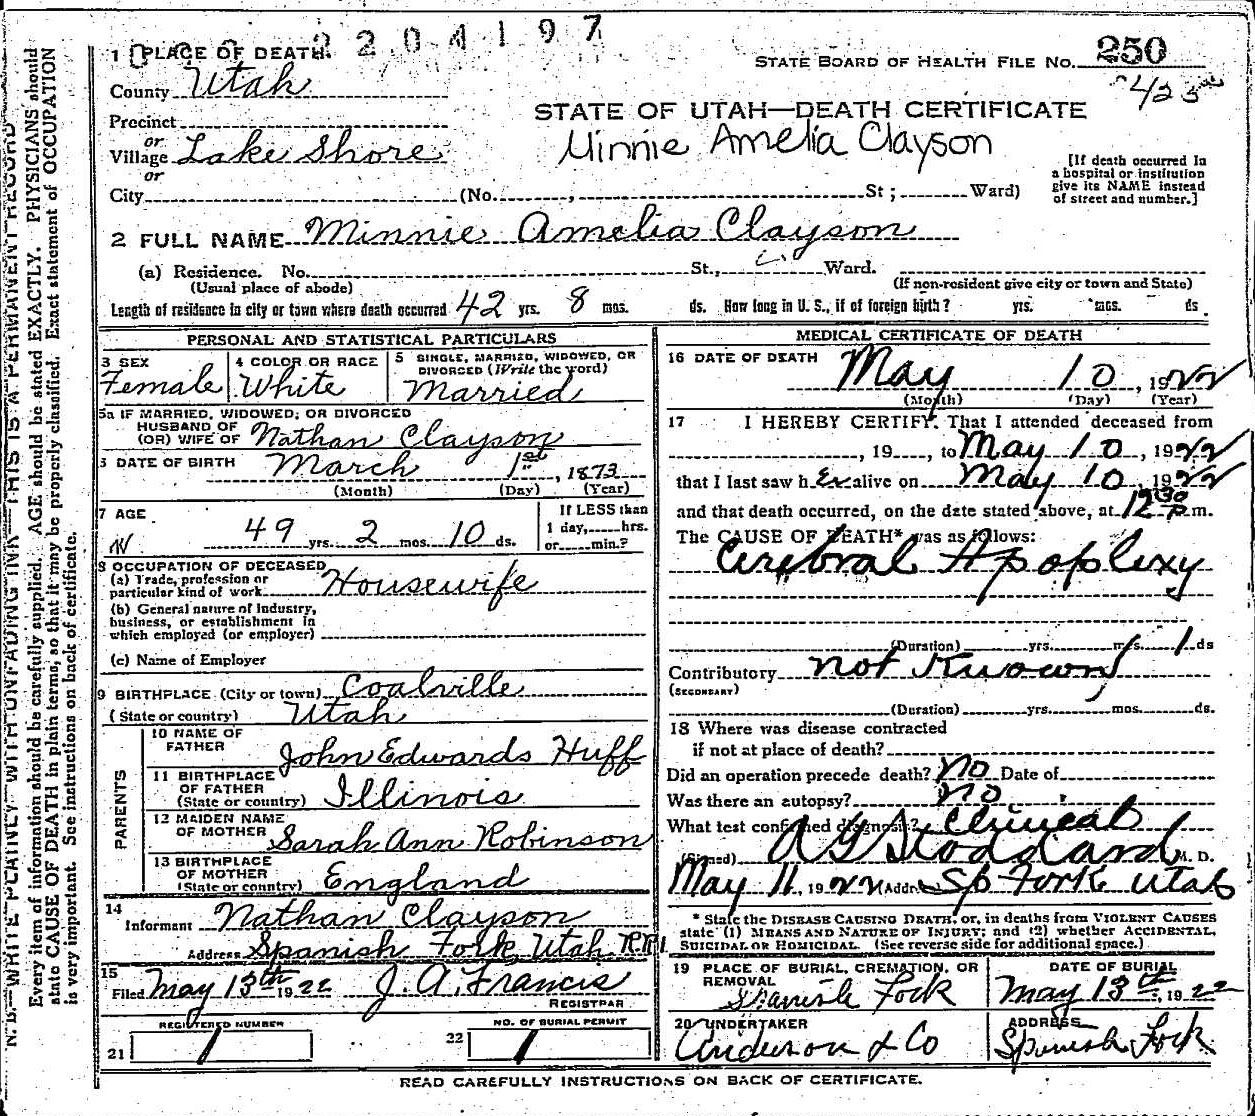 2204197
1 PLACE OF DEATH
STATE BOARD OF HEALTH FILE No. 250
County Utah
STATE OF UTAH—DEATH CERTIFICATE
Precinct
or
Village Lake Shore
Minnie Amelia Clayson
or
City (No. , St ; Ward)
[If death occurred in
a hospital or institution
give its NAME instead
of street and number.]
2 FULL NAME Minnie Amelia Clayson
(a) Residence. No. St., Ward.
(Usual place of abode)
(If non-resident give city or town and State)
Length of residence in city or town where death occurred 42 yrs. 8 mos. ds. How long in U. S., if of foreign birth? yrs. mos. ds
PERSONAL AND STATISTICAL PARTICULARS
3 SEX
Female
4 COLOR OR RACE
White
5 SINGLE, MARRIED, WIDOWED, OR
DIVORCED (Write the word)
Married
5a IF MARRIED, WIDOWED, OR DIVORCED
HUSBAND OF
(OR) WIFE OF Nathan Clayson
6 DATE OF BIRTH March 1st, 1873
(Month) (Day) (Year)
7 AGE
49 yrs. 2 mos. 10 ds.
If LESS than
1 day, hrs.
or min.?
8 OCCUPATION OF DECEASED
(a) Trade, profession or
particular kind of work Housewife
(b) General nature of Industry,
business, or establishment in
which employed (or employer)
(c) Name of Employer
9 BIRTHPLACE (City or town) Coalville
(State or country) Utah
PARENTS
10 NAME OF
FATHER John Edwards Huff
11 BIRTHPLACE
OF FATHER
(State or country) Illinois
12 MAIDEN NAME
OF MOTHER Sarah Ann Robinson
13 BIRTHPLACE
OF MOTHER
(State or country) England
14
Informant Nathan Clayson
Address Spanish Fork, Utah. R#1.
15
Filed May 13th 1922 J. A. Francis
REGISTRAR
REGISTERED NUMBER
21 1
NO. OF BURIAL PERMIT
22 1
MEDICAL CERTIFICATE OF DEATH
16 DATE OF DEATH
May 10, 1922
(Month) (Day) (Year)
17 I HEREBY CERTIFY, That I attended deceased from
, 19 , to May 10, 1922
that I last saw h er alive on May 10, 1922
and that death occurred, on the date stated above, at 12 30 p. m.
The CAUSE OF DEATH* was as follows:
Cerebral Apoplexy
(Duration) yrs. mos. 1 ds
Contributory not Known
(SECONDARY)
(Duration) yrs. mos. ds.
18 Where was disease contracted
if not at place of death?
Did an operation precede death? No Date of
Was there an autopsy? No
What test confirmed diagnosis? Clinical
(Signed) A G Stoddard M. D.
May 11, 1922 Addr Sp Fork Utah
* State the DISEASE CAUSING DEATH, or, in deaths from VIOLENT CAUSES
state (1) MEANS AND NATURE OF INJURY; and (2) whether ACCIDENTAL,
SUICIDAL OR HOMICIDAL. (See reverse side for additional space.)
19 PLACE OF BURIAL, CREMATION, OR
REMOVAL
Spanish Fork
DATE OF BURIAL
May 13th, 1922
20 UNDERTAKER
Anderson & Co
ADDRESS
Spanish Fork
READ CAREFULLY INSTRUCTIONS ON BACK OF CERTIFICATE.
N. B.—WRITE PLAINLY WITH UNFADING INK—THIS IS A PERMANENT RECORD
Every item of information should be carefully supplied. AGE should be stated EXACTLY. PHYSICIANS should
state CAUSE OF DEATH in plain terms, so that it may be properly classified. Exact statement of OCCUPATION
is very important. See instructions on back of certificate.